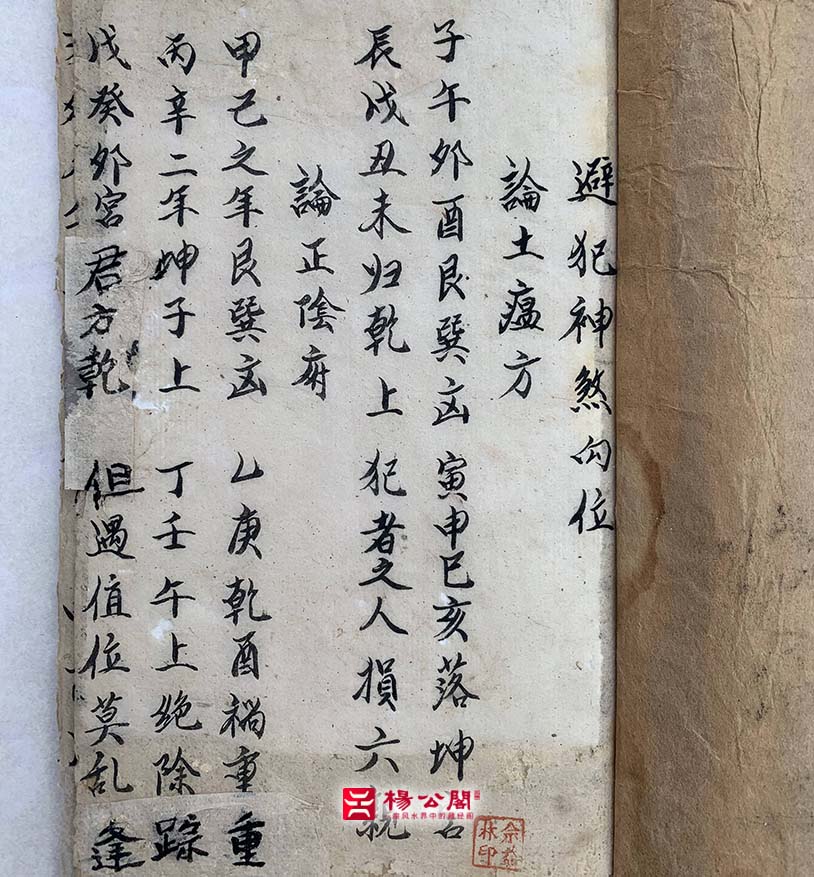 避犯神煞向位
論土瘟方
子午卯酉艮巽凶 寅申巳亥落坤宮
辰戌丑未归乾上 犯者之人損六
論正陰府
甲己之年艮巽凶 乙庚乾酉禍重重
丙辛二年坤子上 丁壬午上绝除踪
戊癸卯宮君方乾 但遇值位莫乱逢
楊公閣